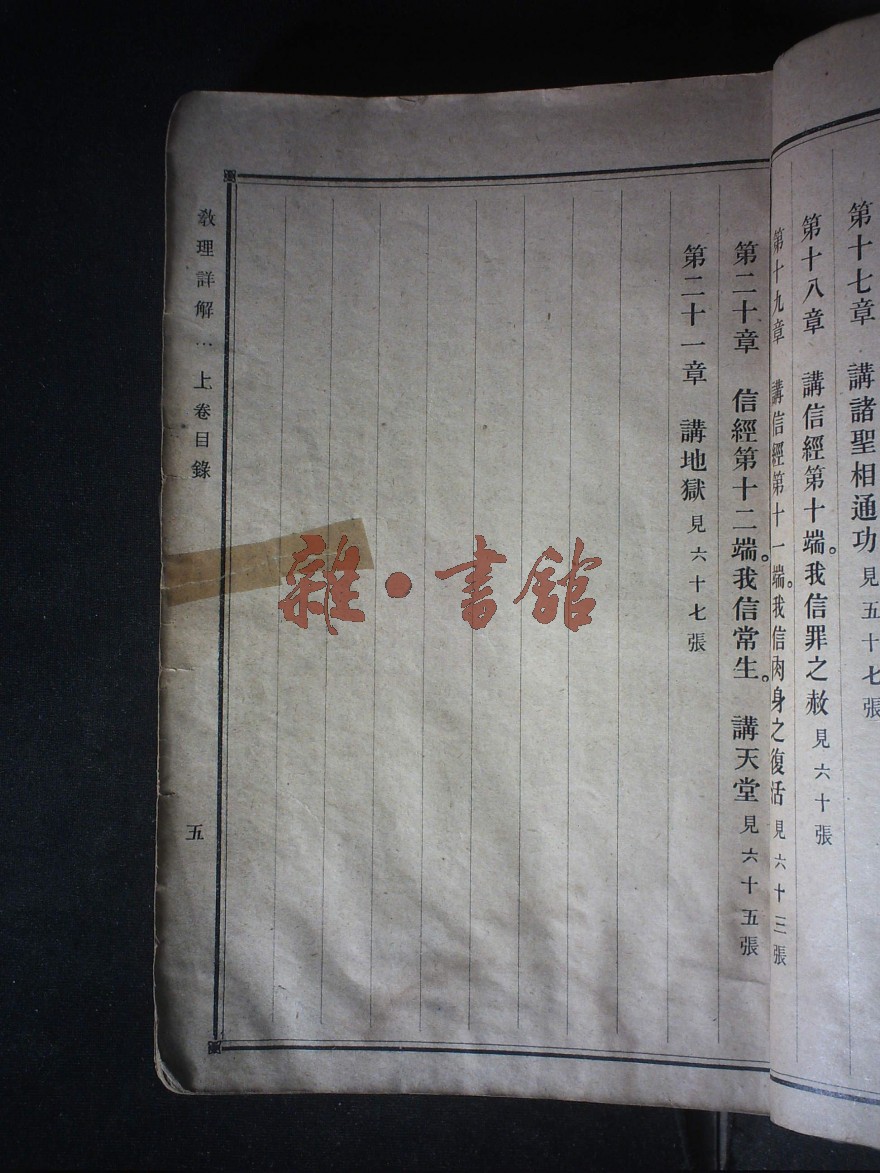 第十七章　講諸聖相通功 見五十七張
第十八章　講信經第十端。我信罪之赦 見六十張
第十九章　講信經第十一端。我信肉身之復活 見六十三張
第二十章　信經第十二端。我信常生。　講天堂 見六十五張
第二十一章　講地獄 見六十七張
教理詳解…上卷目錄
五
雜·書館